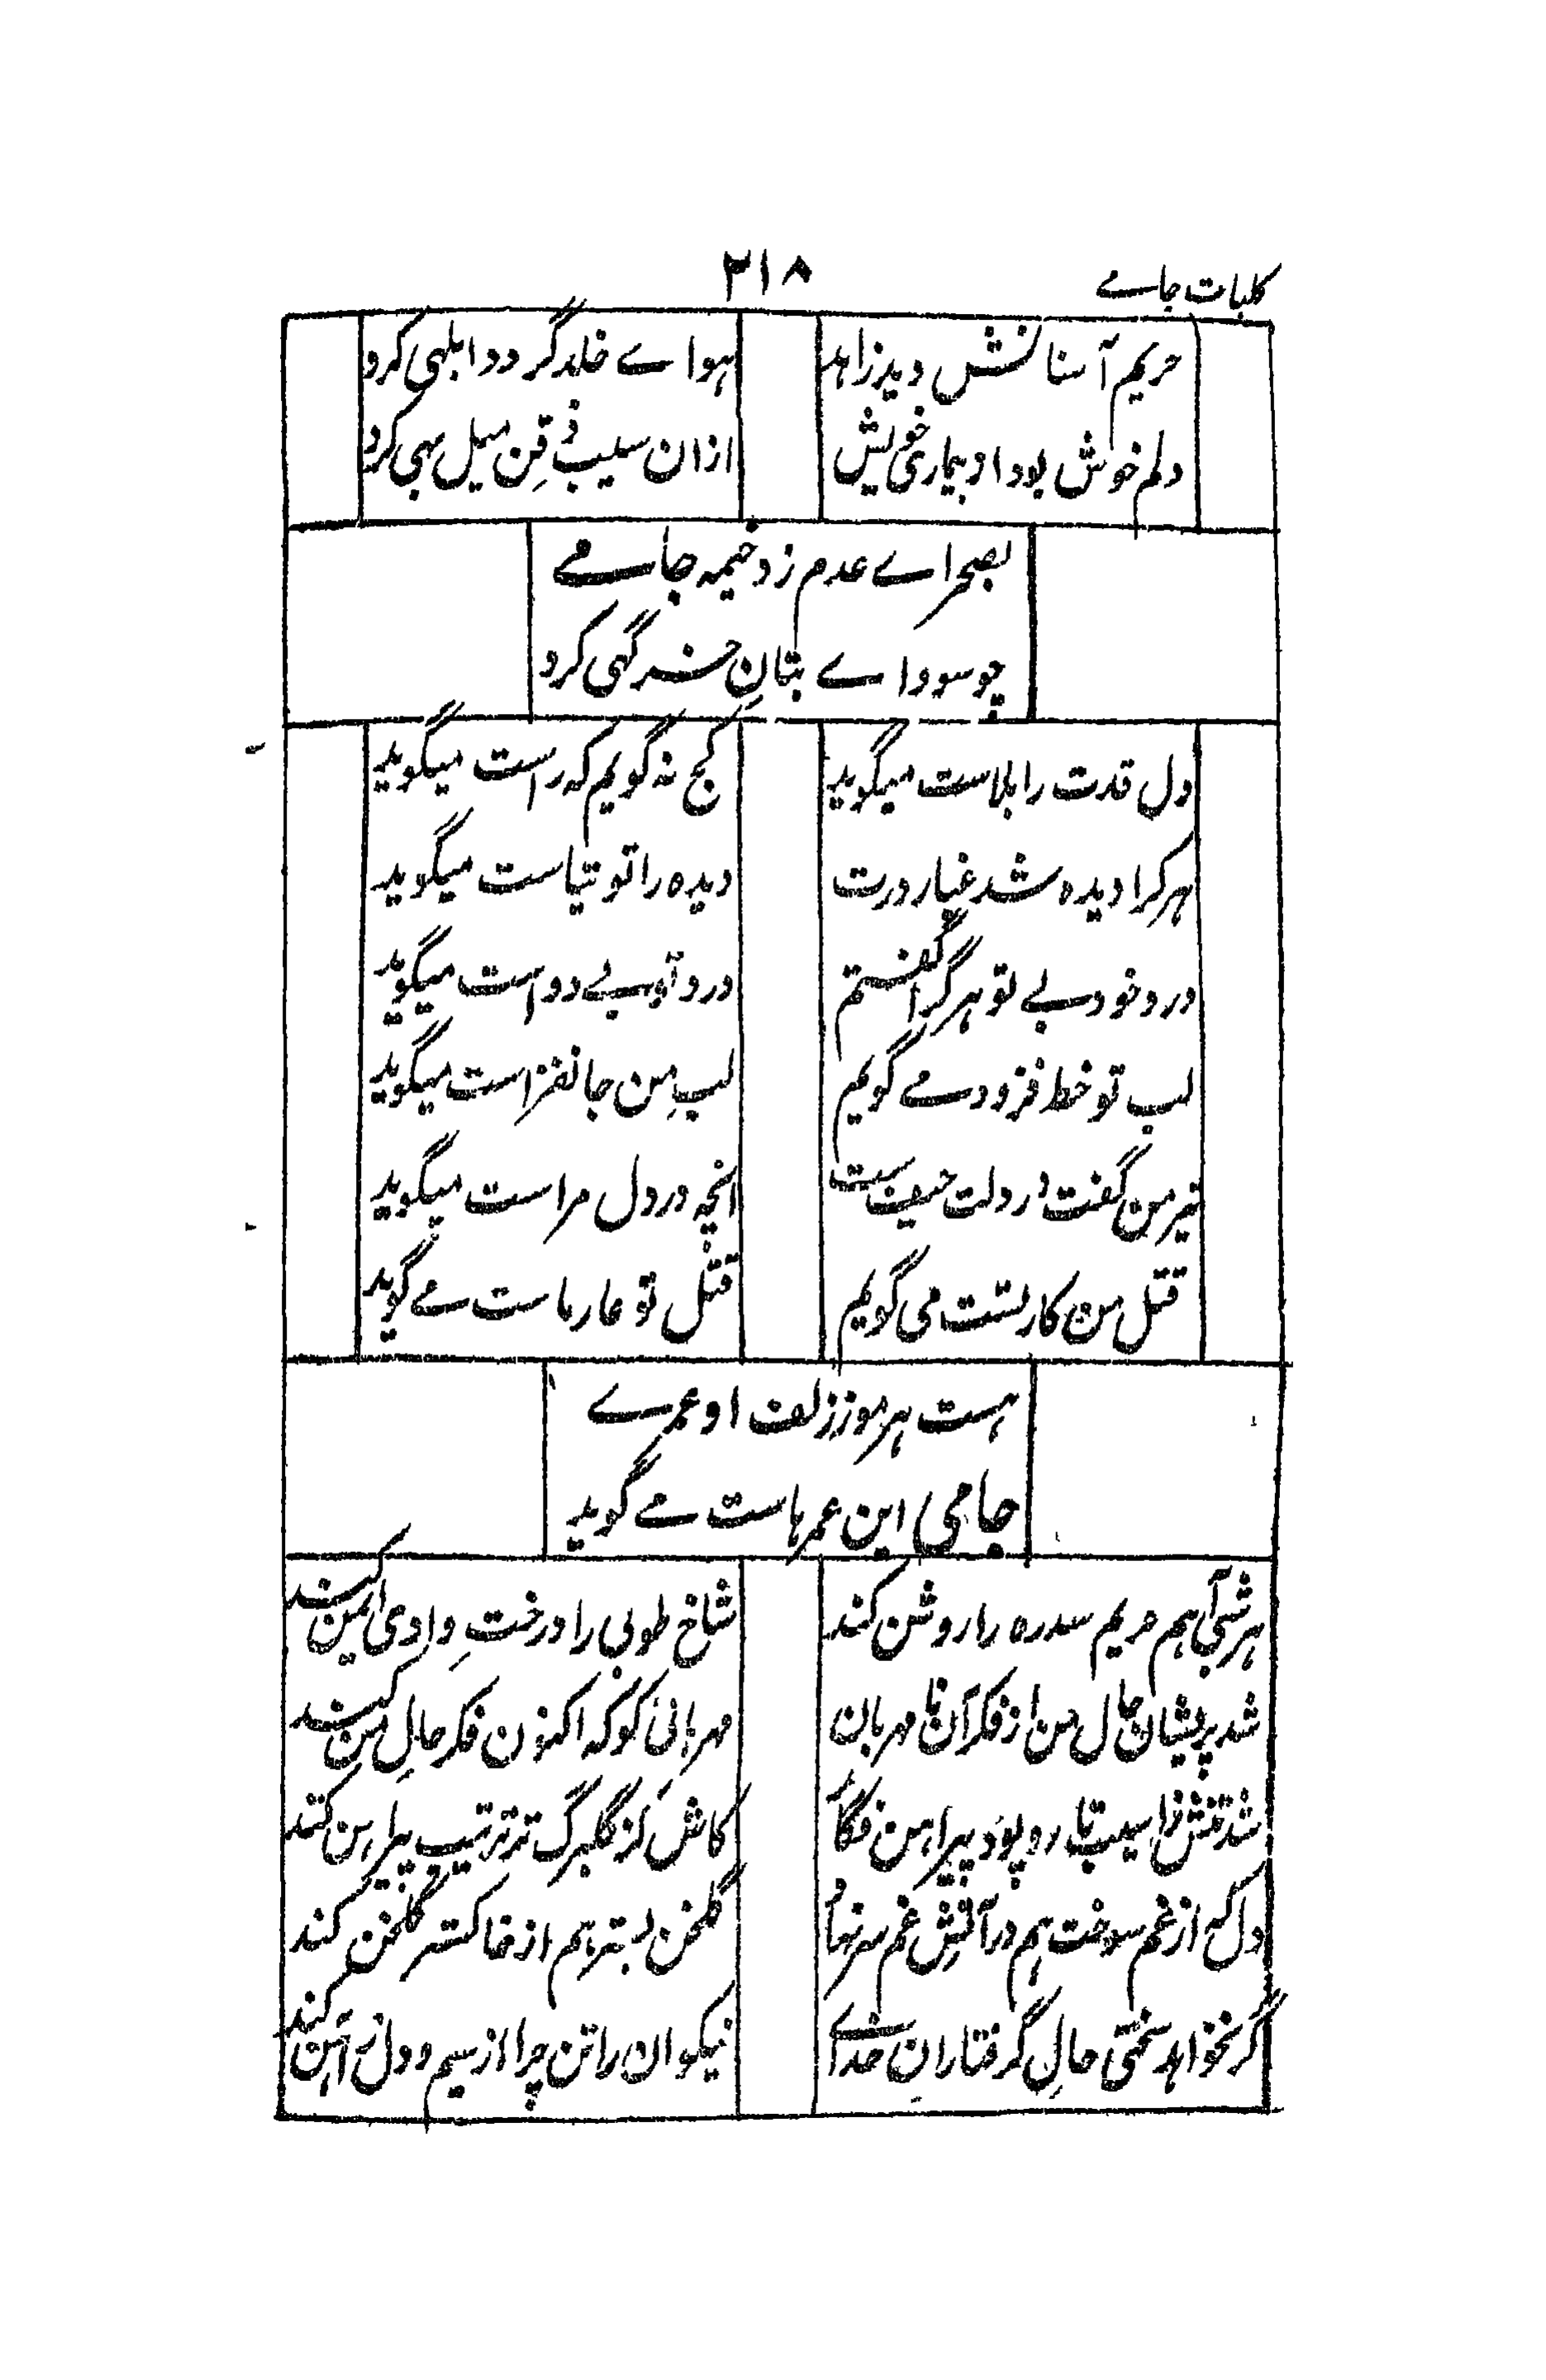 کلیات جامے
۲۱۸
حریم آستانش دید زاہد
ہواے خلد کرد و ابلہی کرد
دلم خوش بود او بیماری خویش
ازان سیب ذقن میل بہی کرد
بصحراے عدم زد خیمہ جامے
چو سوداے بتان خرگہی کرد
دل قدت را بلاست میگوید
کج نہ گویم کہ راست میگوید
ہر کرا دیدہ شد غبار درت
دیدہ را توتیاست میگوید
درد خود بے تو ہر کرا گفتم
درد تو بے دواست میگوید
لب تو خط فزود مے گویم
لبِ من جانفزاست میگوید
تیر من گفت در دلت حیف ست
انچہ در دل مراست میگوید
قتل من کار تست می گویم
قتل تو عار ماست مے گوید
ہست ہر مو ز زلف او عمرے
جامی این عمرہاست مے گوید
ہر شبی آہم حریم سدرہ را روشن کند
شاخ طوبی را درختِ وادی ایمن کند
شد پریشان حال من از فکر آن نا مہربان
مہربانی کو کہ اکنون فکر حالِ من کند
شد تنش را سیب تار و پود پیراہن فگار
کاش کز گلبرگ تر ترتیب پیراہن کند
دل کہ از غم سوخت ہم در آتشِ غم سر نہاد
گلخن بستر ہم از خاکستر گلخن کند
گر نخواہد سختی حالِ گرفتاران خداے
نیکوان را تن چرا از سیم و دل ز آہن کند